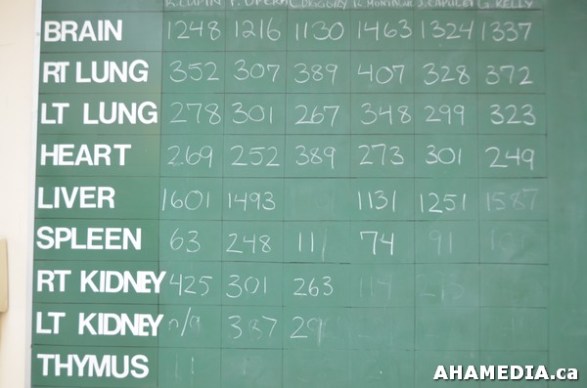 G. KELLY
BRAIN 1248 1216 1130 1463 1324 1337
RT LUNG 352 307 389 407 328 372
LT LUNG 278 301 267 348 299 323
HEART 269 252 389 273 301 249
LIVER 1601 1493 1131 1251 1587
SPLEEN 63 248 111 74 91
RT KIDNEY 425 301 263
LT KIDNEY n/a 387 29
THYMUS 11
AHAMEDIA.ca